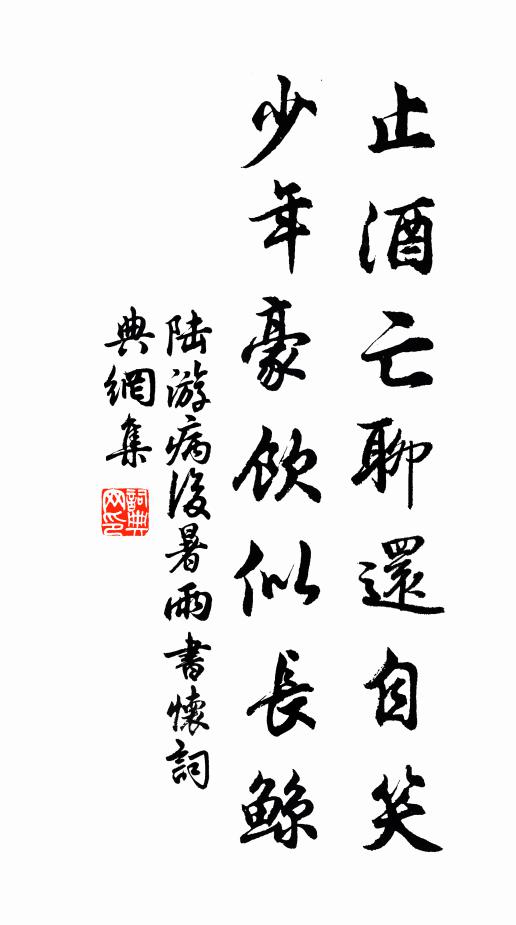 止酒亡聊還自笑
少年豪飲似長鯨
陆游病後暑雨書懷詞
典網集
詞典网印